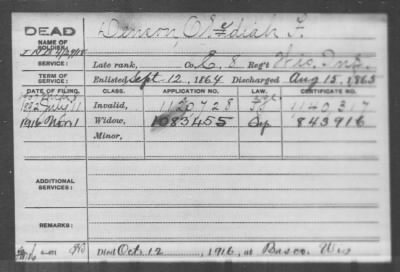 DEAD
NAME OF SOLDIER: Denson, Obediah F.
SERVICE: Late rank, Co. E, 8 Reg't Wis. Inf.
TERM OF SERVICE: Enlisted Sept. 12, 1864 Discharged Aug 15, 1865
DATE OF FILING. CLASS. APPLICATION NO. LAW. CERTIFICATE NO.
1892 July 11 Invalid, 1120728 1140317
1916 Nov 1 Widow, 1083455 843916
Minor,
ADDITIONAL SERVICES:
REMARKS:
Died Oct. 12, 1916, at Basco, Wis